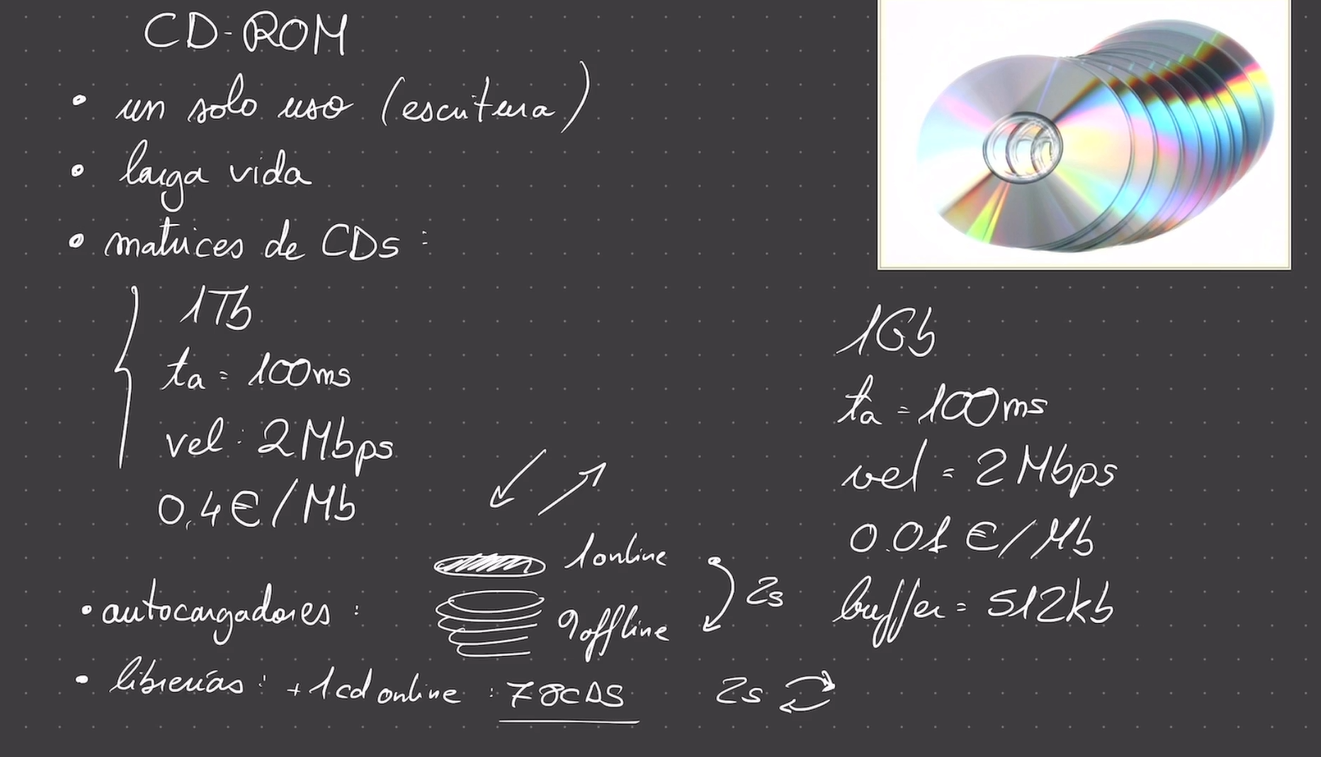 CD-ROM
• un solo uso (escritura)
• larga vida
• matrices de CDs :
1Tb
ta = 100ms
vel : 2Mbps
0,4€/Mb
• autocargadores :
1 online
9 offline
2s
• librerías : + 1 cd online : 78CDS
2s
1Gb
ta = 100ms
vel = 2Mbps
0.01 €/Mb
buffer = 512kb